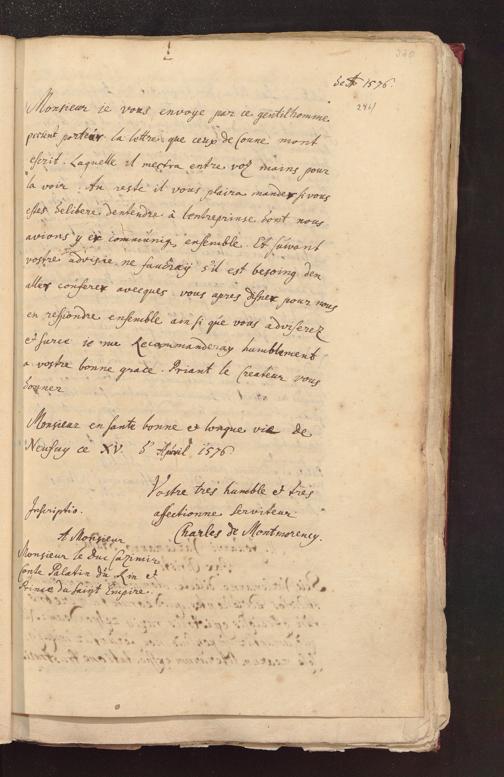 320
1576.
244
Monsieur ie vous envoye par ce gentilhomme
present porteur la lettre que ceux de mont
escrit. Laquelle il mestra entre voz mains pour
la voir. Au reste il vous plaira mander si vous
estes delibere dentendre à lentreprinse dont nous
avions y er communiq ensemble. Et suivant
vostre advisie ne faudray s'il est besoing den
aller conferer avecques vous apres disner pour nous
en resoudre ensemble ainsi que vous adviserez
Et surce ie me Recommanderay humblement
a vostre bonne grace. Priant le Createur vous
donner
Monsieur en sante bonne et longue vie de
Neufuy ce XV. d'April 1576
Vostre tres humble et tres
affectionne serviteur
Charles de Montmorency.
Inscriptio.
A Monsieur
Monsieur le Duc Cazimir
Conte Palatin du Rin et
Prince du Saint Empire.